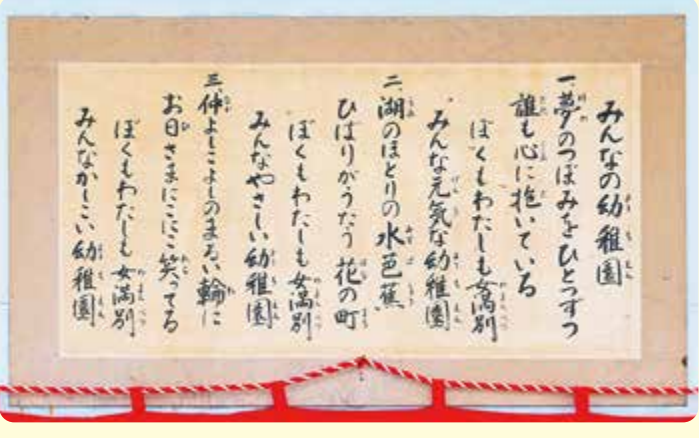 みんなの幼稚園
一、夢のつぼみをひとつずつ
誰も心に抱いている
ぼくもわたしも女満別
みんな元気な幼稚園
二、湖のほとりの水芭蕉
ひばりがうたう花の町
ぼくもわたしも女満別
みんなやさしい幼稚園
三、仲よしこよしのまるい輪に
お日さまにこにこ笑ってる
ぼくもわたしも女満別
みんなかしこい幼稚園